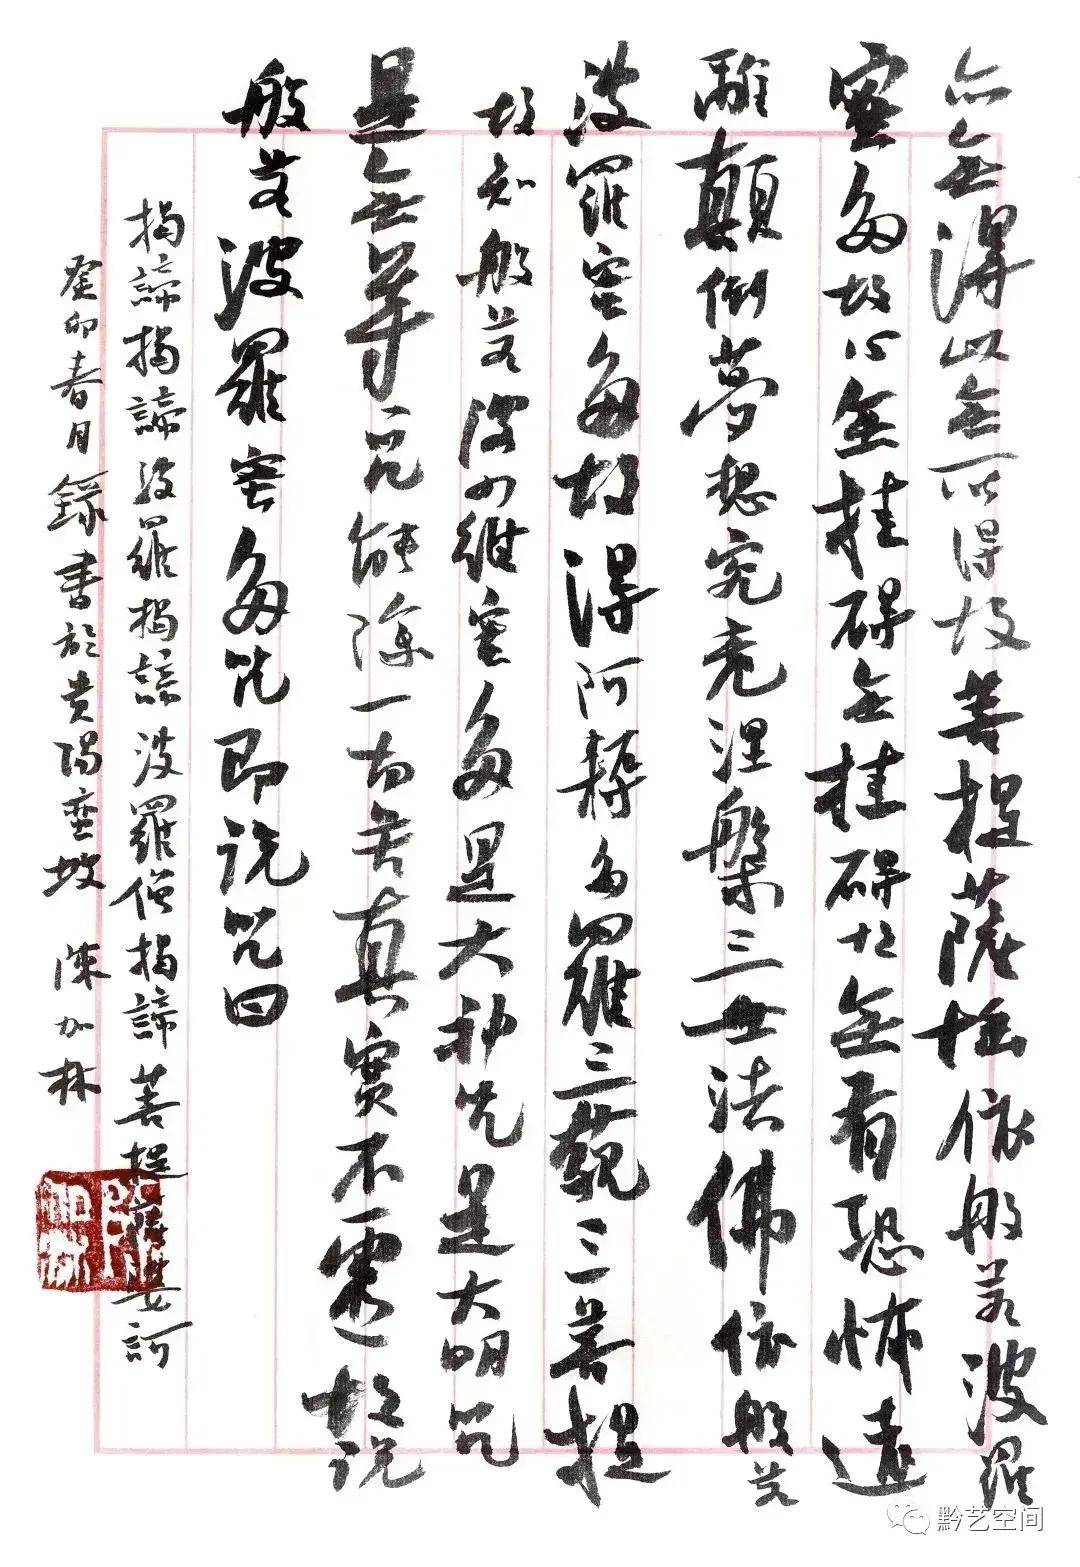 亦無得以無所得故菩提薩埵依般若波羅
蜜多故心無挂礙無挂礙故無有恐怖遠
離顛倒夢想究竟涅槃三世法佛依般若
波羅蜜多故得阿耨多羅三藐三菩提
故知般若波羅蜜多是大神咒是大明咒
是無等咒能除一切苦真實不虛故說
般若波羅蜜多咒即說咒曰
揭諦揭諦波羅揭諦波羅僧揭諦菩提薩婆訶
癸卯春月錄書於貴陽坡 陳加林
黔艺空间